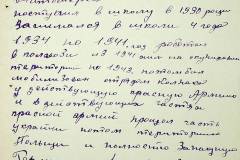 поступил в школу в 1930 роци
занимался в школи 4 года
1934 по 1941 год работал
в колхози из 1941 жил на окупированой
територии по 1943 потом был
мобилизован отрядом
у действующую красную Армию
и в действующих частях
красной армии прошол часть
украйни потом територию
Польщи и полностю Западную